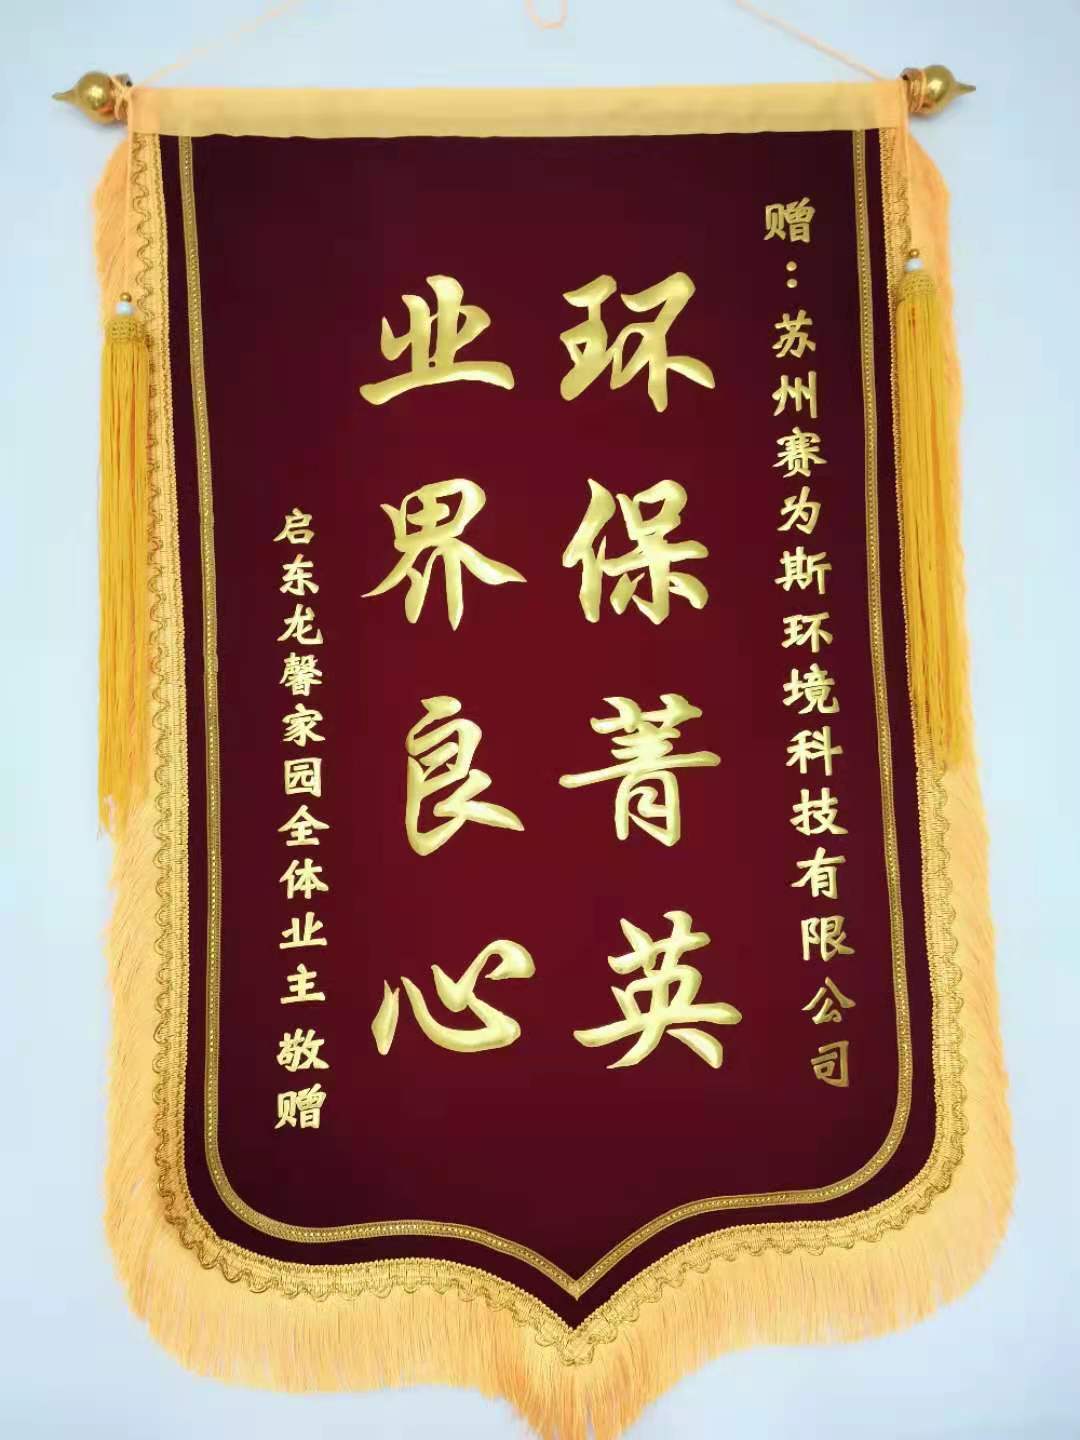 赠：苏州赛为斯环境科技有限公司
环保菁英
业界良心
启东龙馨家园全体业主 敬赠